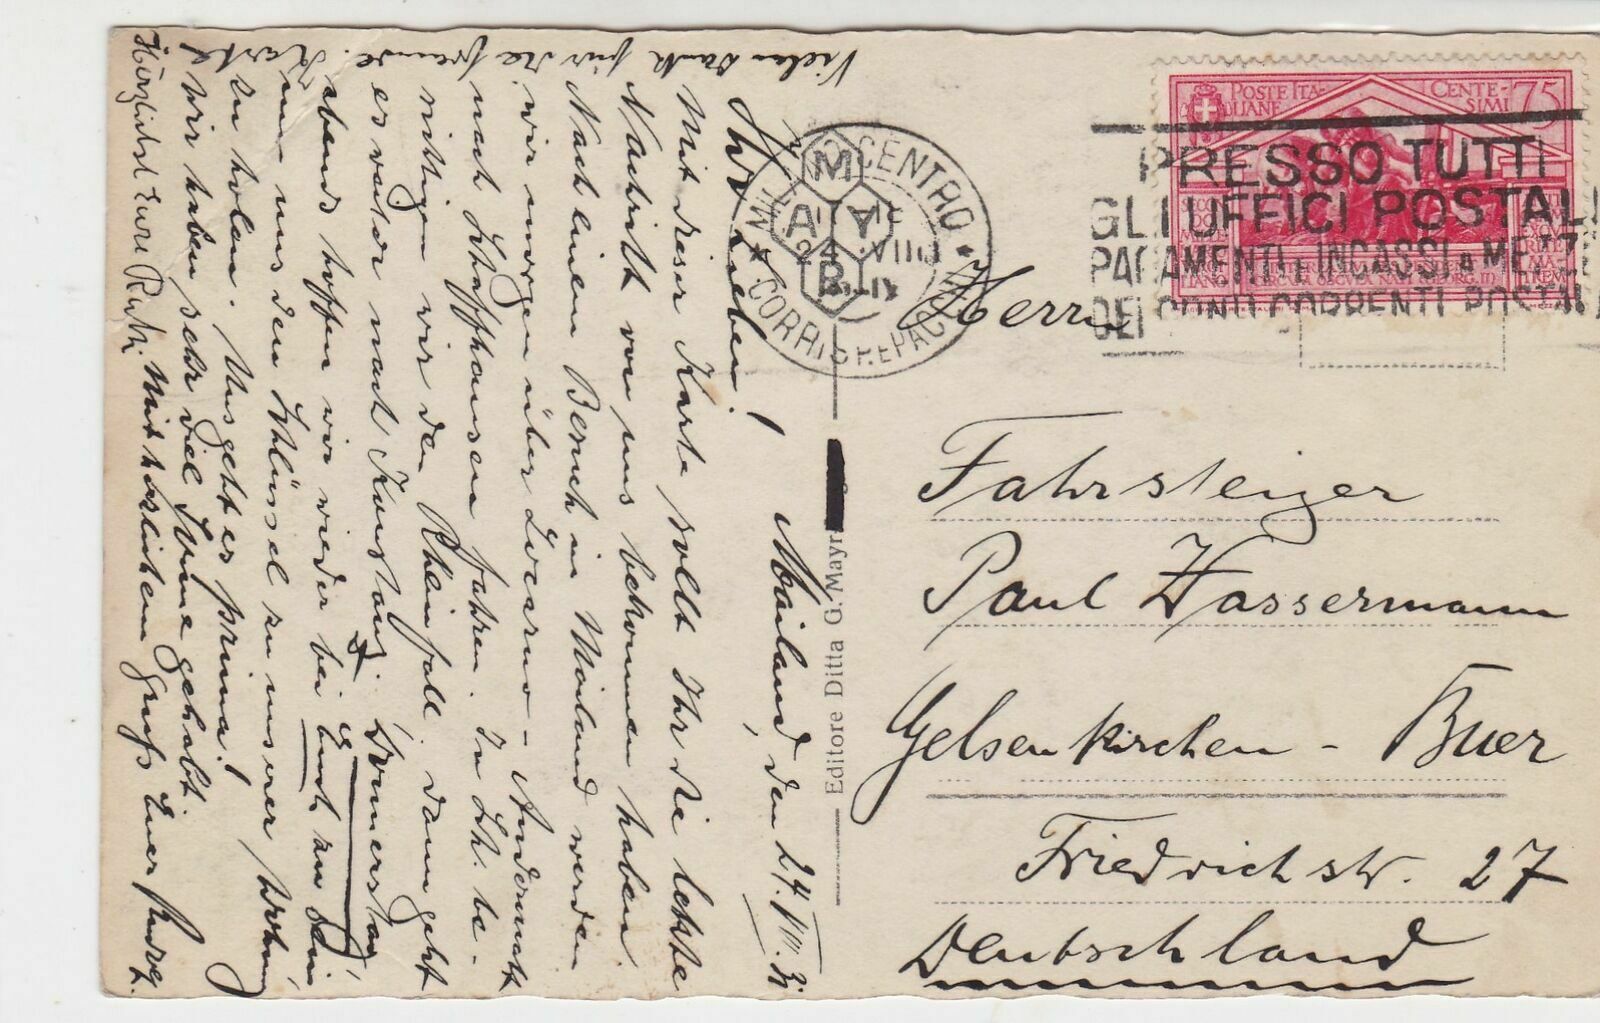 Mailand, den 24. VIII. 31
Ihr Lieben!
Mit dieser Karte sollt Ihr die letzte
Nachricht von uns bekommen haben.
Nach einem Besuch in Mailand werden
wir morgen über Locarno - Andermatt
nach Schaffhausen fahren. In Sch. be-
sichtigen wir den Rheinfall. Dann geht
es weiter nach Konstanz. Donnerstag
abend hoffen wir wieder bei Euch zu sein
um uns den Schlüssel zu unserer Wohng
zu holen. Uns geht es prima!
Wir haben sehr viel Sonne gehabt.
Mit herzlichem Gruß Euer
Herzlichst Eure Ruth.
Vielen Dank für die Karte.
Editore Ditta G. Mayr
Herrn
Fahrsteiger
Paul Wassermann
Gelsenkirchen - Buer
Friedrichstr. 27
Deutschland
POSTE ITA-
LIANE
CENTE-
SIMI 75
MILANO CENTRO
CORRISP. E PACCHI
M
A Y
B
PRESSO TUTTI
GLI UFFICI POSTALI
PAGAMENTI E INCASSI A MEZZO
DEI CONTI CORRENTI POSTALI